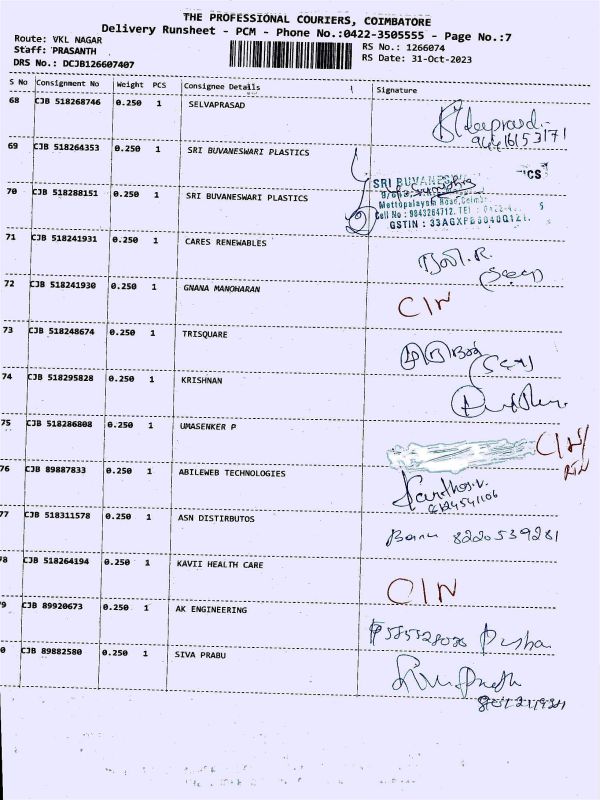 THE PROFESSIONAL COURIERS, COIMBATORE
Delivery Runsheet - PCM - Phone No.:0422-3505555 - Page No.:7
Route: VKL NAGAR
Staff: PRASANTH
DRS No.: DCJB126607407
RS No.: 1266074
RS Date: 31-Oct-2023
S No Consignment No Weight PCS Consignee Details Signature
68 CJB 518268746 0.250 1 SELVAPRASAD
69 CJB 518264353 0.250 1 SRI BUVANESWARI PLASTICS
SRI BUVANESW
70 CJB 518288151 0.250 1 SRI BUVANESWARI PLASTICS
Mettupalayam Road,
Cell No : 9843264712. TEL :
GSTIN :
71 CJB 518241931 0.250 1 CARES RENEWABLES
72 CJB 518241930 0.250 1 GNANA MANOHARAN CIN
73 CJB 518248674 0.250 1 TRISQUARE
74 CJB 518295828 0.250 1 KRISHNAN
75 CJB 518286808 0.250 1 UMASENKER P CIN/
RTN
76 CJB 89887833 0.250 1 ABILEWEB TECHNOLOGIES
77 CJB 518311578 0.250 1 ASN DISTIRBUTOS Banu 8220539281
78 CJB 518264194 0.250 1 KAVII HEALTH CARE CIN
9 CJB 89920673 0.250 1 AK ENGINEERING
0 CJB 89882580 0.250 1 SIVA PRABU